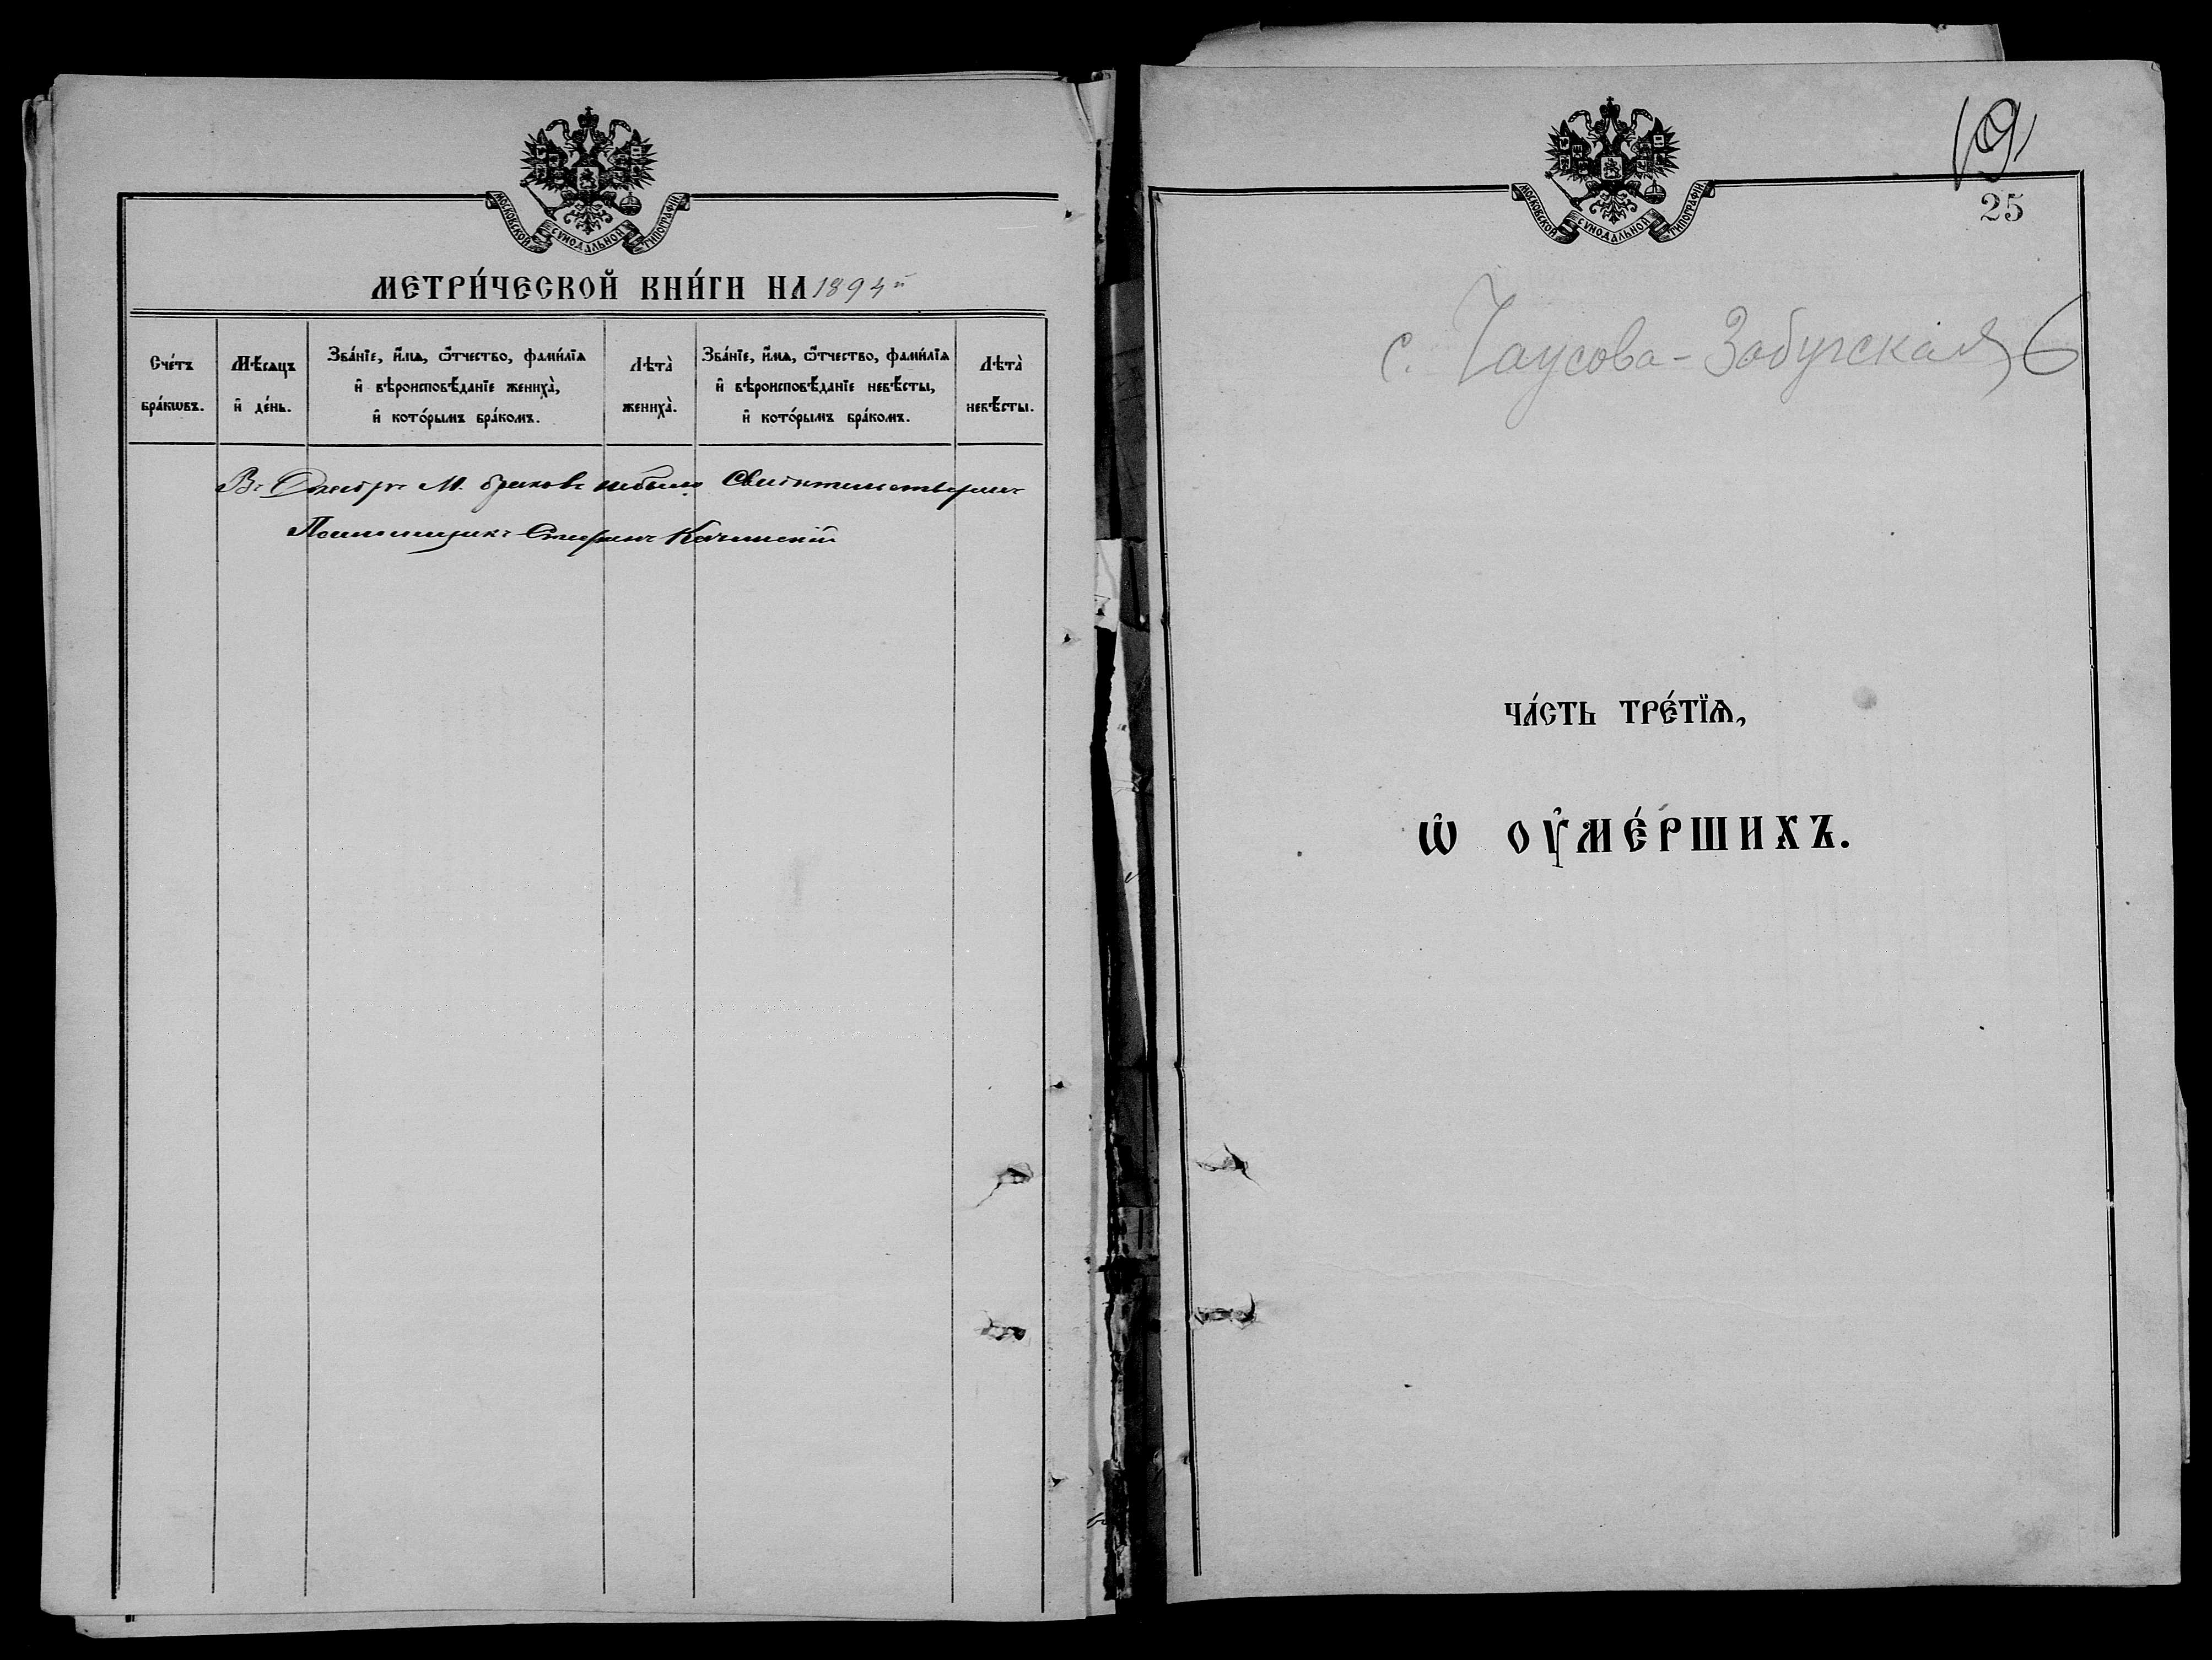 МОСКОВСКОЙ СѴНОДАЛЬНОЙ ТИПОГРАФІИ
МЕТРИ́ЧЕСКОЙ КНИ́ГИ НА 1894й
Сче́тъ бра́кѡвъ.
Мѣ́сяцъ и҆ де́нь.
Зва́нїе, и҆́мѧ, ѻ҆́тчество, фамѝлїѧ
и҆ вѣроисповѣ́данїе женихà,
и҆ кото́рымъ бра́комъ.
Лѣта̀ женихà.
Зва́нїе, и҆́мѧ, ѻ҆́тчество, фамѝлїѧ
и҆ вѣроисповѣ́данїе невѣ́сты,
и҆ кото́рымъ бра́комъ.
Лѣта̀ невѣ́сты.
Въ М. браковъ небыло
19
МОСКОВСКОЙ СѴНОДАЛЬНОЙ ТИПОГРАФІИ
25
с. Чаусова-Забугская 6
ЧА́СТЬ ТРЕ́ТЇѦ,
Ѽ ОУ҆МЕ́РШИХЪ.